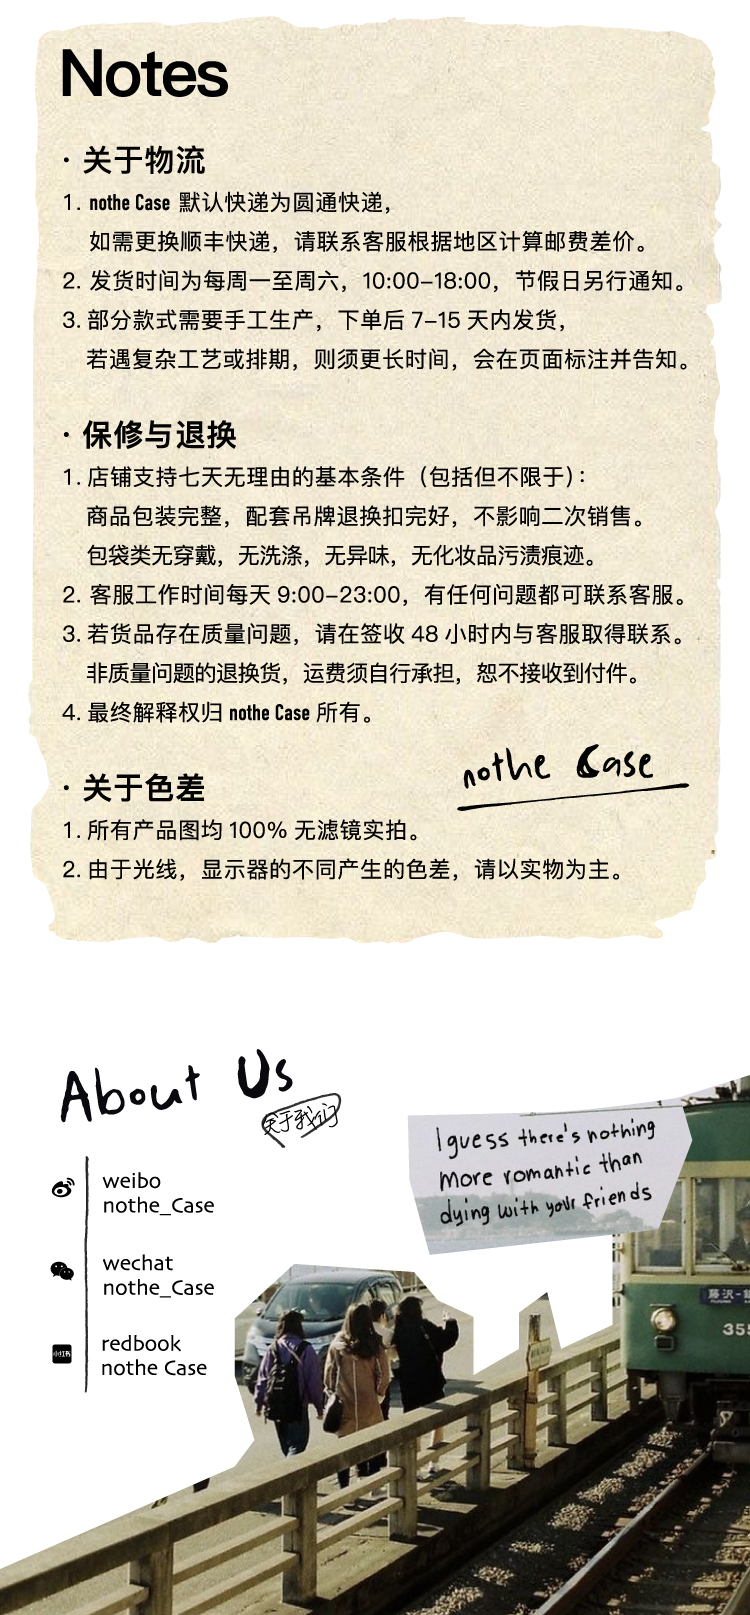 Notes
· 关于物流
1. nothe Case 默认快递为圆通快递，
如需更换顺丰快递，请联系客服根据地区计算邮费差价。
2. 发货时间为每周一至周六，10:00–18:00，节假日另行通知。
3. 部分款式需要手工生产，下单后 7–15 天内发货，
若遇复杂工艺或排期，则须更长时间，会在页面标注并告知。
· 保修与退换
1. 店铺支持七天无理由的基本条件（包括但不限于）：
商品包装完整，配套吊牌退换扣完好，不影响二次销售。
包袋类无穿戴，无洗涤，无异味，无化妆品污渍痕迹。
2. 客服工作时间每天 9:00–23:00，有任何问题都可联系客服。
3. 若货品存在质量问题，请在签收 48 小时内与客服取得联系。
非质量问题的退换货，运费须自行承担，恕不接收到付件。
4. 最终解释权归 nothe Case 所有。
nothe Case
· 关于色差
1. 所有产品图均 100% 无滤镜实拍。
2. 由于光线，显示器的不同产生的色差，请以实物为主。
About Us
关于我们
I guess there's nothing
more romantic than
dying with your friends
weibo
nothe_Case
wechat
nothe_Case
小红书
redbook
nothe Case
藤沢-
355